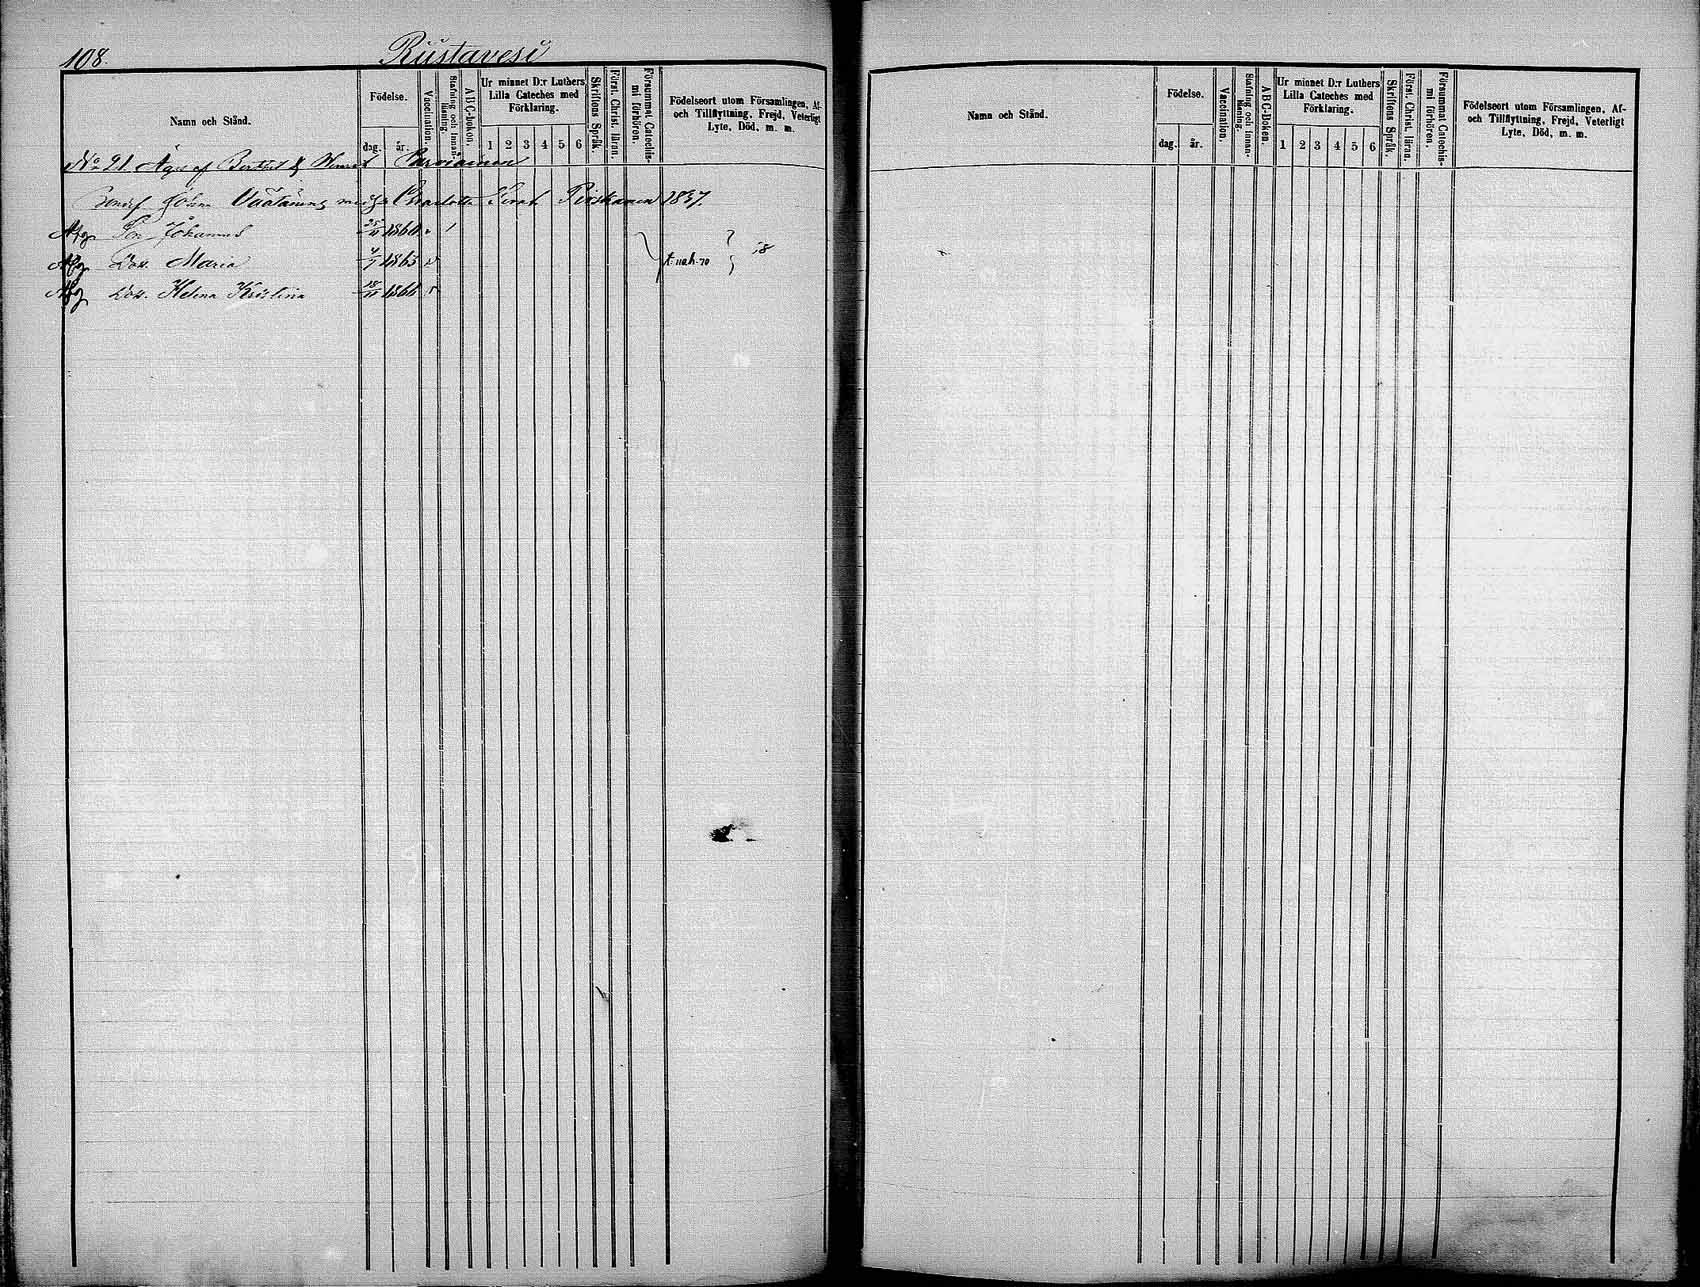 108.
Rustavesi
Namn och Stånd.
Födelse.
dag.
år.
Vaccination.
Stafning och innan-
läsning.
ABC-boken.
Ur minnet D:r Luthers
Lilla Cateches med
Förklaring.
1 2 3 4 5 6
Skriftens Språk.
Först. Christ. läran.
Försummat Catechis-
mi förhören.
Födelseort utom Församlingen, Af-
och Tillflyttning, Frejd, Veterligt
Lyte, Död, m. m.
No 21. Äges af Parviainen
Johan Charlotte Pirskanen 1837.
Afg Son Johannes 25/11 1860
Afg Dott. Maria 1863 18
Afg Dott. Helena Kristina 18/11 1866
Namn och Stånd.
Födelse.
dag.
år.
Vaccination.
Stafning och innan-
läsning.
ABC-Boken.
Ur minnet D:r Luthers
Lilla Cateches med
Förklaring.
1 2 3 4 5 6
Skriftens Språk.
Först. Christ. läran.
Försummat Catechis-
mi förhören.
Födelseort utom Församlingen, Af-
och Tillflyttning, Frejd, Veterligt
Lyte, Död, m. m.